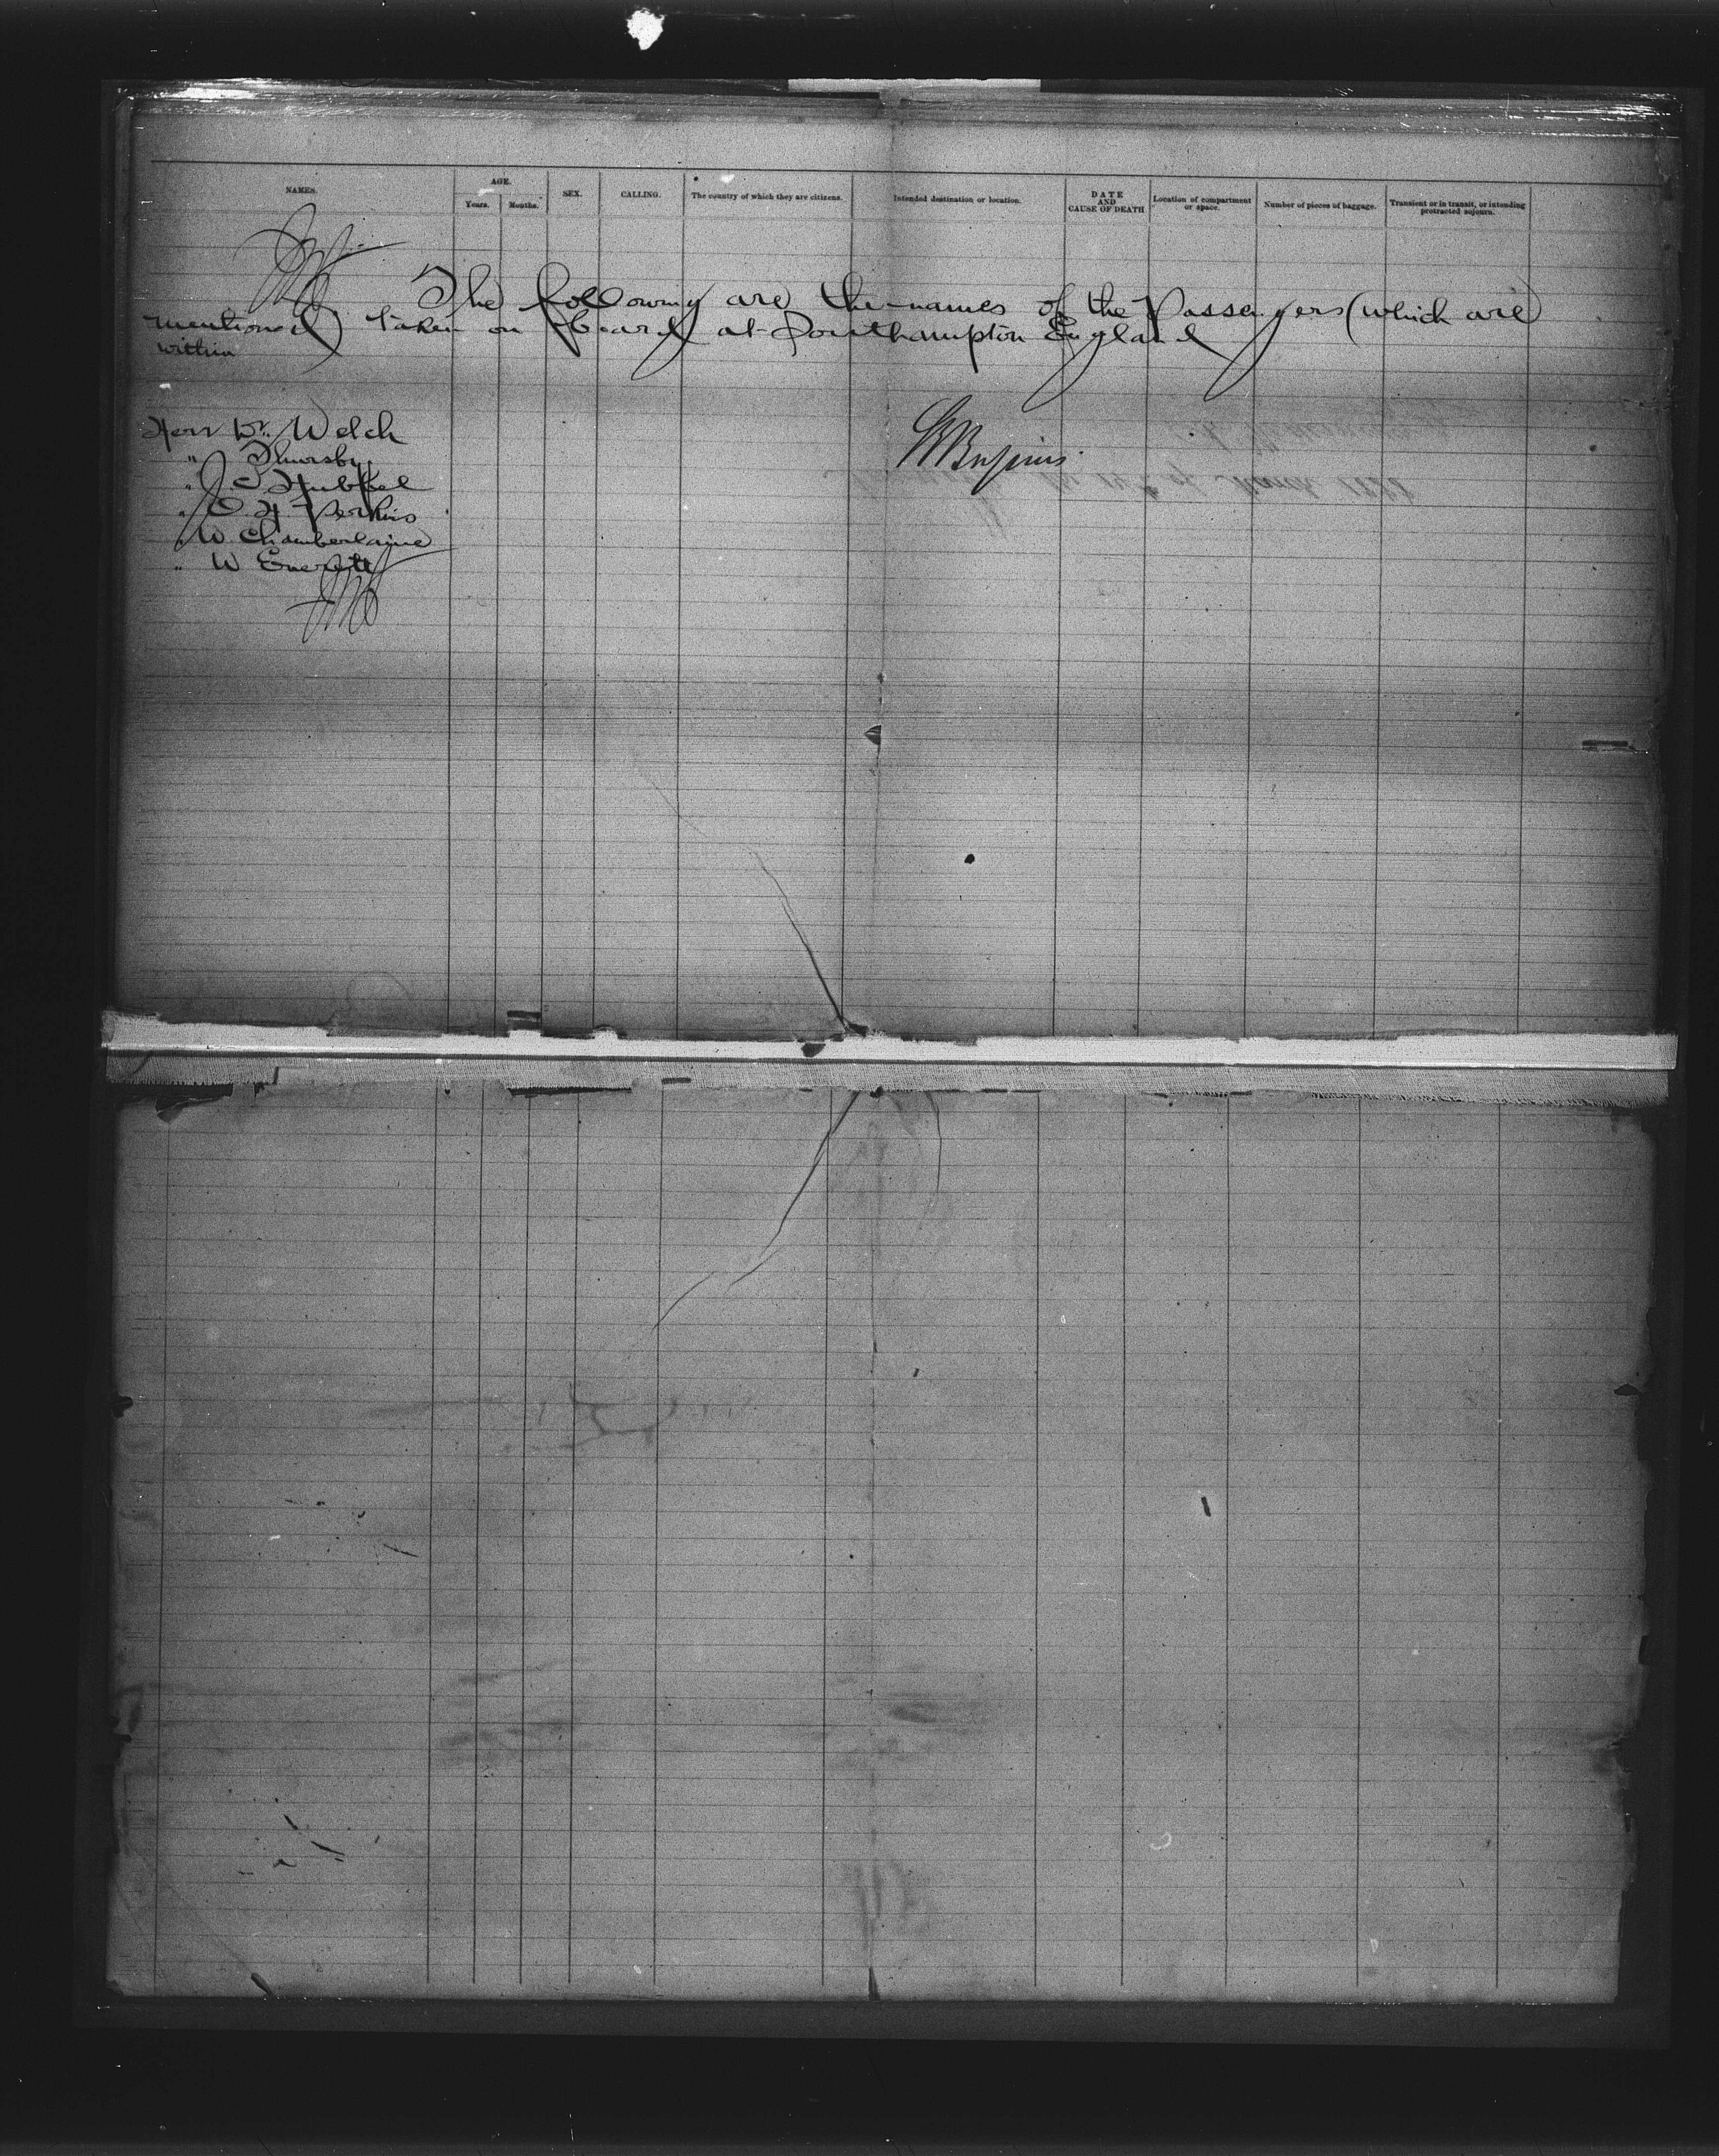 NAMES.
AGE.
Years.
Months.
SEX.
CALLING.
The country of which they are citizens.
Intended destination or location.
DATE
AND
CAUSE OF DEATH
Location of compartment
or space.
Number of pieces of baggage.
Transient or in transit, or intending
protracted sojourn.
The following are the names of the Passengers (which are
mentioned) taken on board at Southampton England
within
Herr W. Welch
" Thursby
" J. C. Hubbel
" C. H. Perkins
" W. Chamberlaine
" W Everett